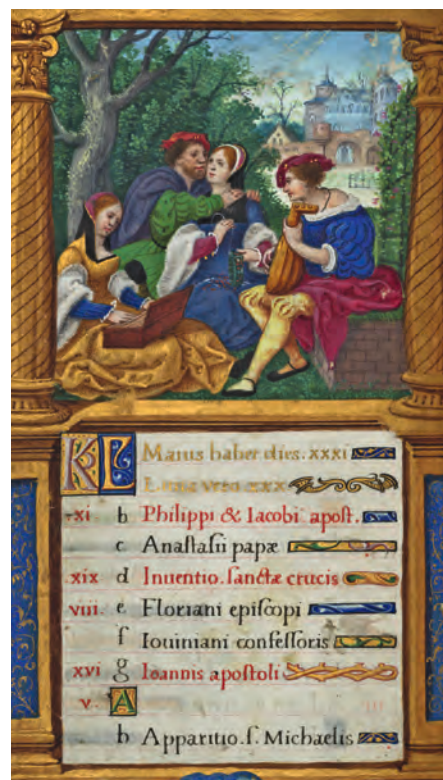 KL Maius habet dies. xxxi
Luna vero xxx
xi b Philippi & Iacobi apost.
c Anastasii papæ
xix d Inuentio. sanctæ crucis
viii. e Floriani episcopi
f Iouiniani confessoris
xvi g Ioannis apostoli
v. A
b Apparitio. s. Michaelis